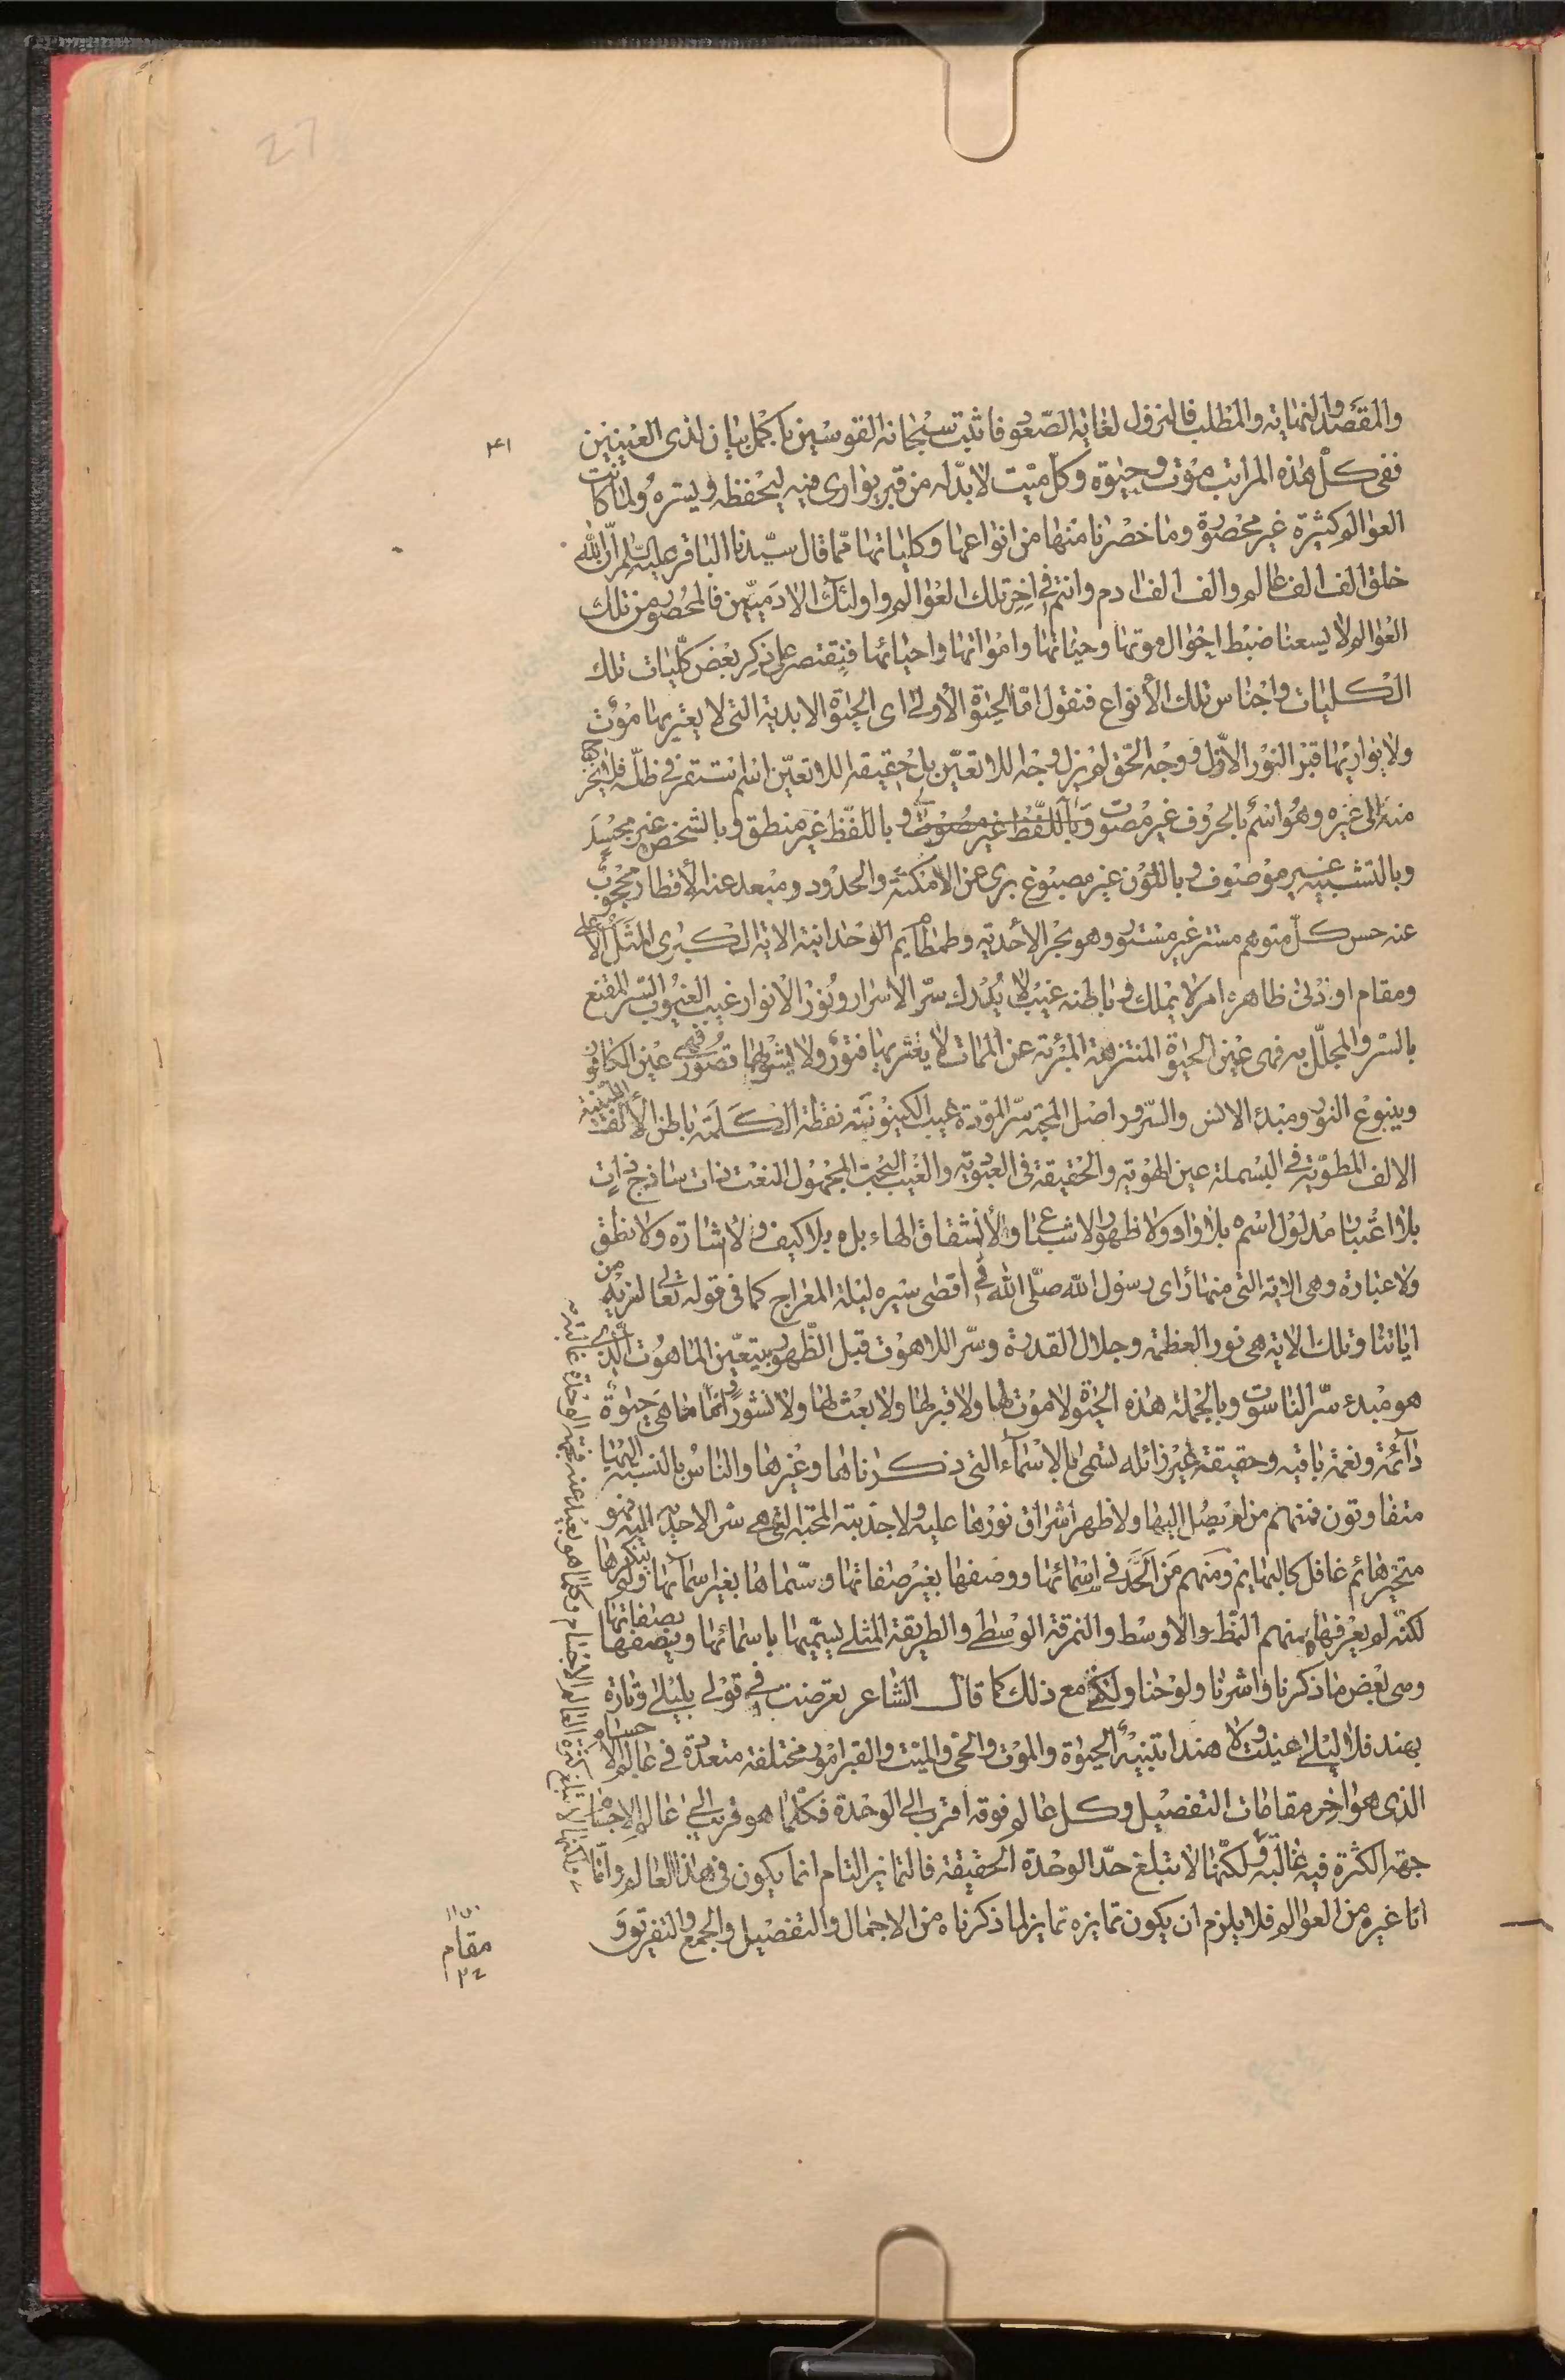 27
٣١
والمقصد والنهاية والمطلب فالنزول لغاية الصّعود فاثبت سبحانه القوسين باكمل بيان لذى العينين
ففى كلّ هذه المراتب موت وحيٰوة وكلّ ميّت لا بدّ له من قبر يوارى فيه ليحفظه ويستره ولما كانت
العوالم كثيرة غير محصورة وما خصرنا منها من انواعها وكلياتها ممّا قال سيّدنا الباقر عليه السّلم انّ اللّه
خلق الف الف عالم والف الف ادم وانتم فى اخر تلك العوالم واولئك الادميّين فالمحصور من تلك
العوالم لا يسعنا ضبط احوال موتها وحياتها وامواتها واحيائها فنقتصر على ذكر بعض كلّيات تلك
الكليات واجناس تلك الأنواع فنقول امّا الحيٰوة الأولى اى الحيٰوة الابدية التى لا يعتريها موت
ولا يواريها قبر النور الاوّل ووجه الحّق لم يزل وجه اللا تعيّن بل حقيقه اللا تعيّن اسم استقر فى ظلّه فلا يخرج
منه الى غيره وهو اسم بالحروف غير مصوت وباللّفظ غير مصوت وباللّفظ غير منطق وبالشخص غير مجسد
وبالتشبيه غير موصوف وباللون غير مصبوغ برى عن الامكنة والحدود ومبعد عنه الأقطار محجوب
عنه حس كلّ متوهم مستتر غير مستور وهو بحر الأحديه وطمطام يم الوحدانية الاية الكبرى المثل الاعلى
ومقام او ادنى ظاهره امر لا يملك وباطنه غيب لا يدرك سرّ الاسرار ونور الانوار غيب الغيوب السّر المقنع
بالسّر والمجلّل به فهى عين الحيٰوة المنتزهة المبرئة عن الممات لا يعتريها فتور ولا يشوبها قصور وهى عين الكافور
وينبوع النور ومبدء الانس والسّرور اصل المحبّه سّر المودة غيب الكينونيّه نقطة الكلمة باطن الألف اللينية
الالف المطويّة فى البسملة عين الهويه والحقيقة فى العبوديه والغيب البحت المجهول النعت ذات ساذج ذات
بلا اعتبار مدلول اسم ه بلا واو ولا ظهور الاشباع ولا انشقاق الهاء بل ه بلا كيف ولا اشارة ولا نطق
ولا عبارة وهى الاية التى منها راى رسول اللّه صلّى اللّه فى اقصى سيره ليلة المعراج كما فى قوله تعالى لنريه من
اياتنا وتلك الاية هى نور العظمة وجلال القدرة وسّر اللاهوت قبل الظّهور بتعيّن الماهوت الّذى
هو مبدء سّر الناسوت وبالجملة هذه الحيٰوة لا موت لها ولا قبر لها ولا بعث لها ولا نشور وانّما هى حيٰوة
دائمة ونعمة باقيه وحقيقة غير زائله تسمى بالاسماء التى ذكرناها وغيرها والناس بالنسبة اليها
متفاوتون فمنهم من لم يصل اليها ولا ظهر اشراق نورها عليه ولا جذبته المحبّه التى هى سّر الاحديه اليه فهو
متحّير هائم غافل كالبهايم ومنهم من الحد فى اسمائها ووصفها بغير صفاتها وسّماها بغير اسمائها ولم ينكرها
لكنّه لم يعرفها ومنهم النمط الاوسط والنمرقة الوسطى والطريقة المثلى يسّميها باسمائها ويصفها بصفاتها
وهى بعض ما ذكرنا واشرنا ولوحنا ولكن مع ذلك كما قال الشاعر تعرضت فى قولى بليلى وتارة
بهند فلا ليلى عنيت ولا هندا تنبيه الحيٰوة والموت والحى والميّت والقبر امور مختلفة متعددة فى عالم الاجسام
الذى هو اخر مقامات التفصيل وكل عالم فوقه اقرب الى الوحدة فكلّما هو قريب الى عالم الاجسام
جهة الكثرة فيه غالبة ولكنّها لا تبلغ حدّ الوحدة الحقيقة فالتمايز التام انما يكون فى هذا العالم وامّا
امّا غيره من العوالم فلا يلزم ان يكون تمايزه تمايز لما ذكرناه من الاجمال والتفصيل والجمع والتفريق و
مقام